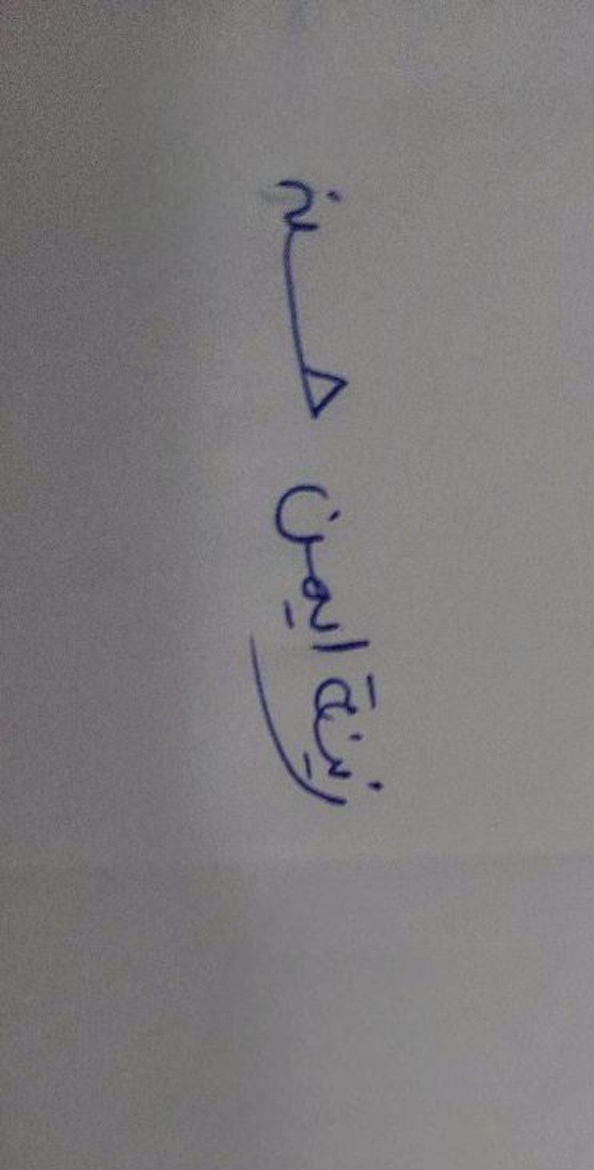 زينة ايمن حسين